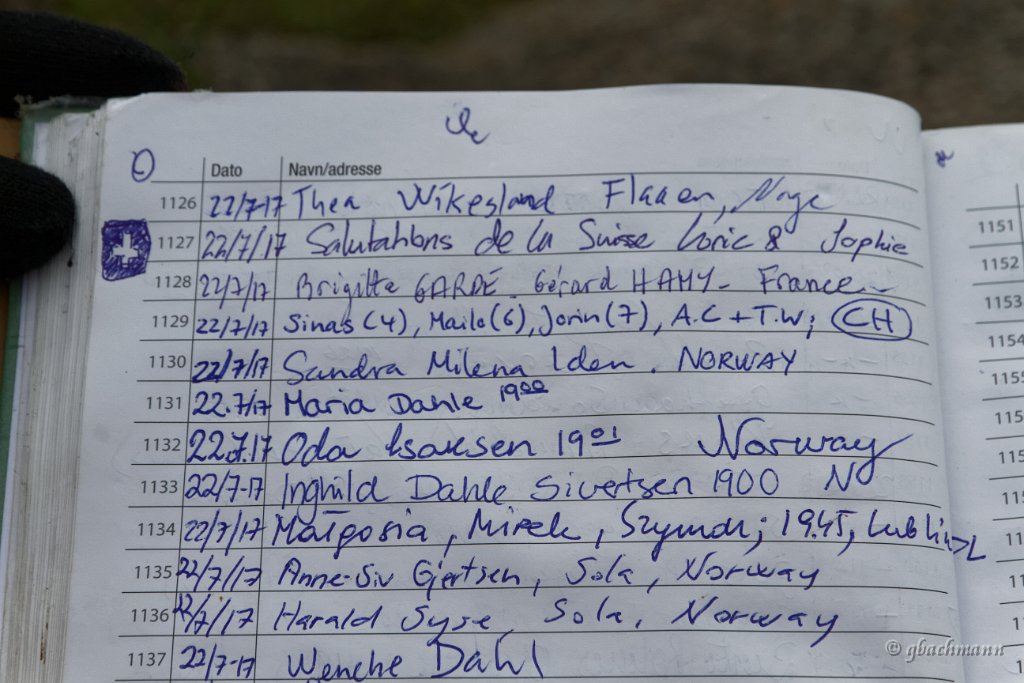 Dato Navn/adresse
1126 22/7-17 Thea Wikesland Flaaen, Norge
1127 22/7/17 Salutations de la Suisse Loric & Sophie
1128 22/7/17 Brigitte GARDE - Gérard HAMY - France
1129 22/7/17 Sinas (4), Mailo (6), Jorin (7), A.C + T.W; CH
1130 22/7/17 Sandra Milena Iden. NORWAY
1131 22.7/17 Maria Dahle 1900
1132 22.7.17 Oda Isaksen 1901 Norway
1133 22/7-17 Inghild Dahle Sivertsen 1900 NO
1134 22/7/17 Małgosia, Mirek, Szymon; 19.45, Lublin
1135 22/7/17 Anne-Siv Gjertsen, Sola, Norway
1136 22/7/17 Harald Syse, Sola, Norway
1137 22/7-17 Wenche Dahl
1151
1152
1153
1154
1155
© gbachmann